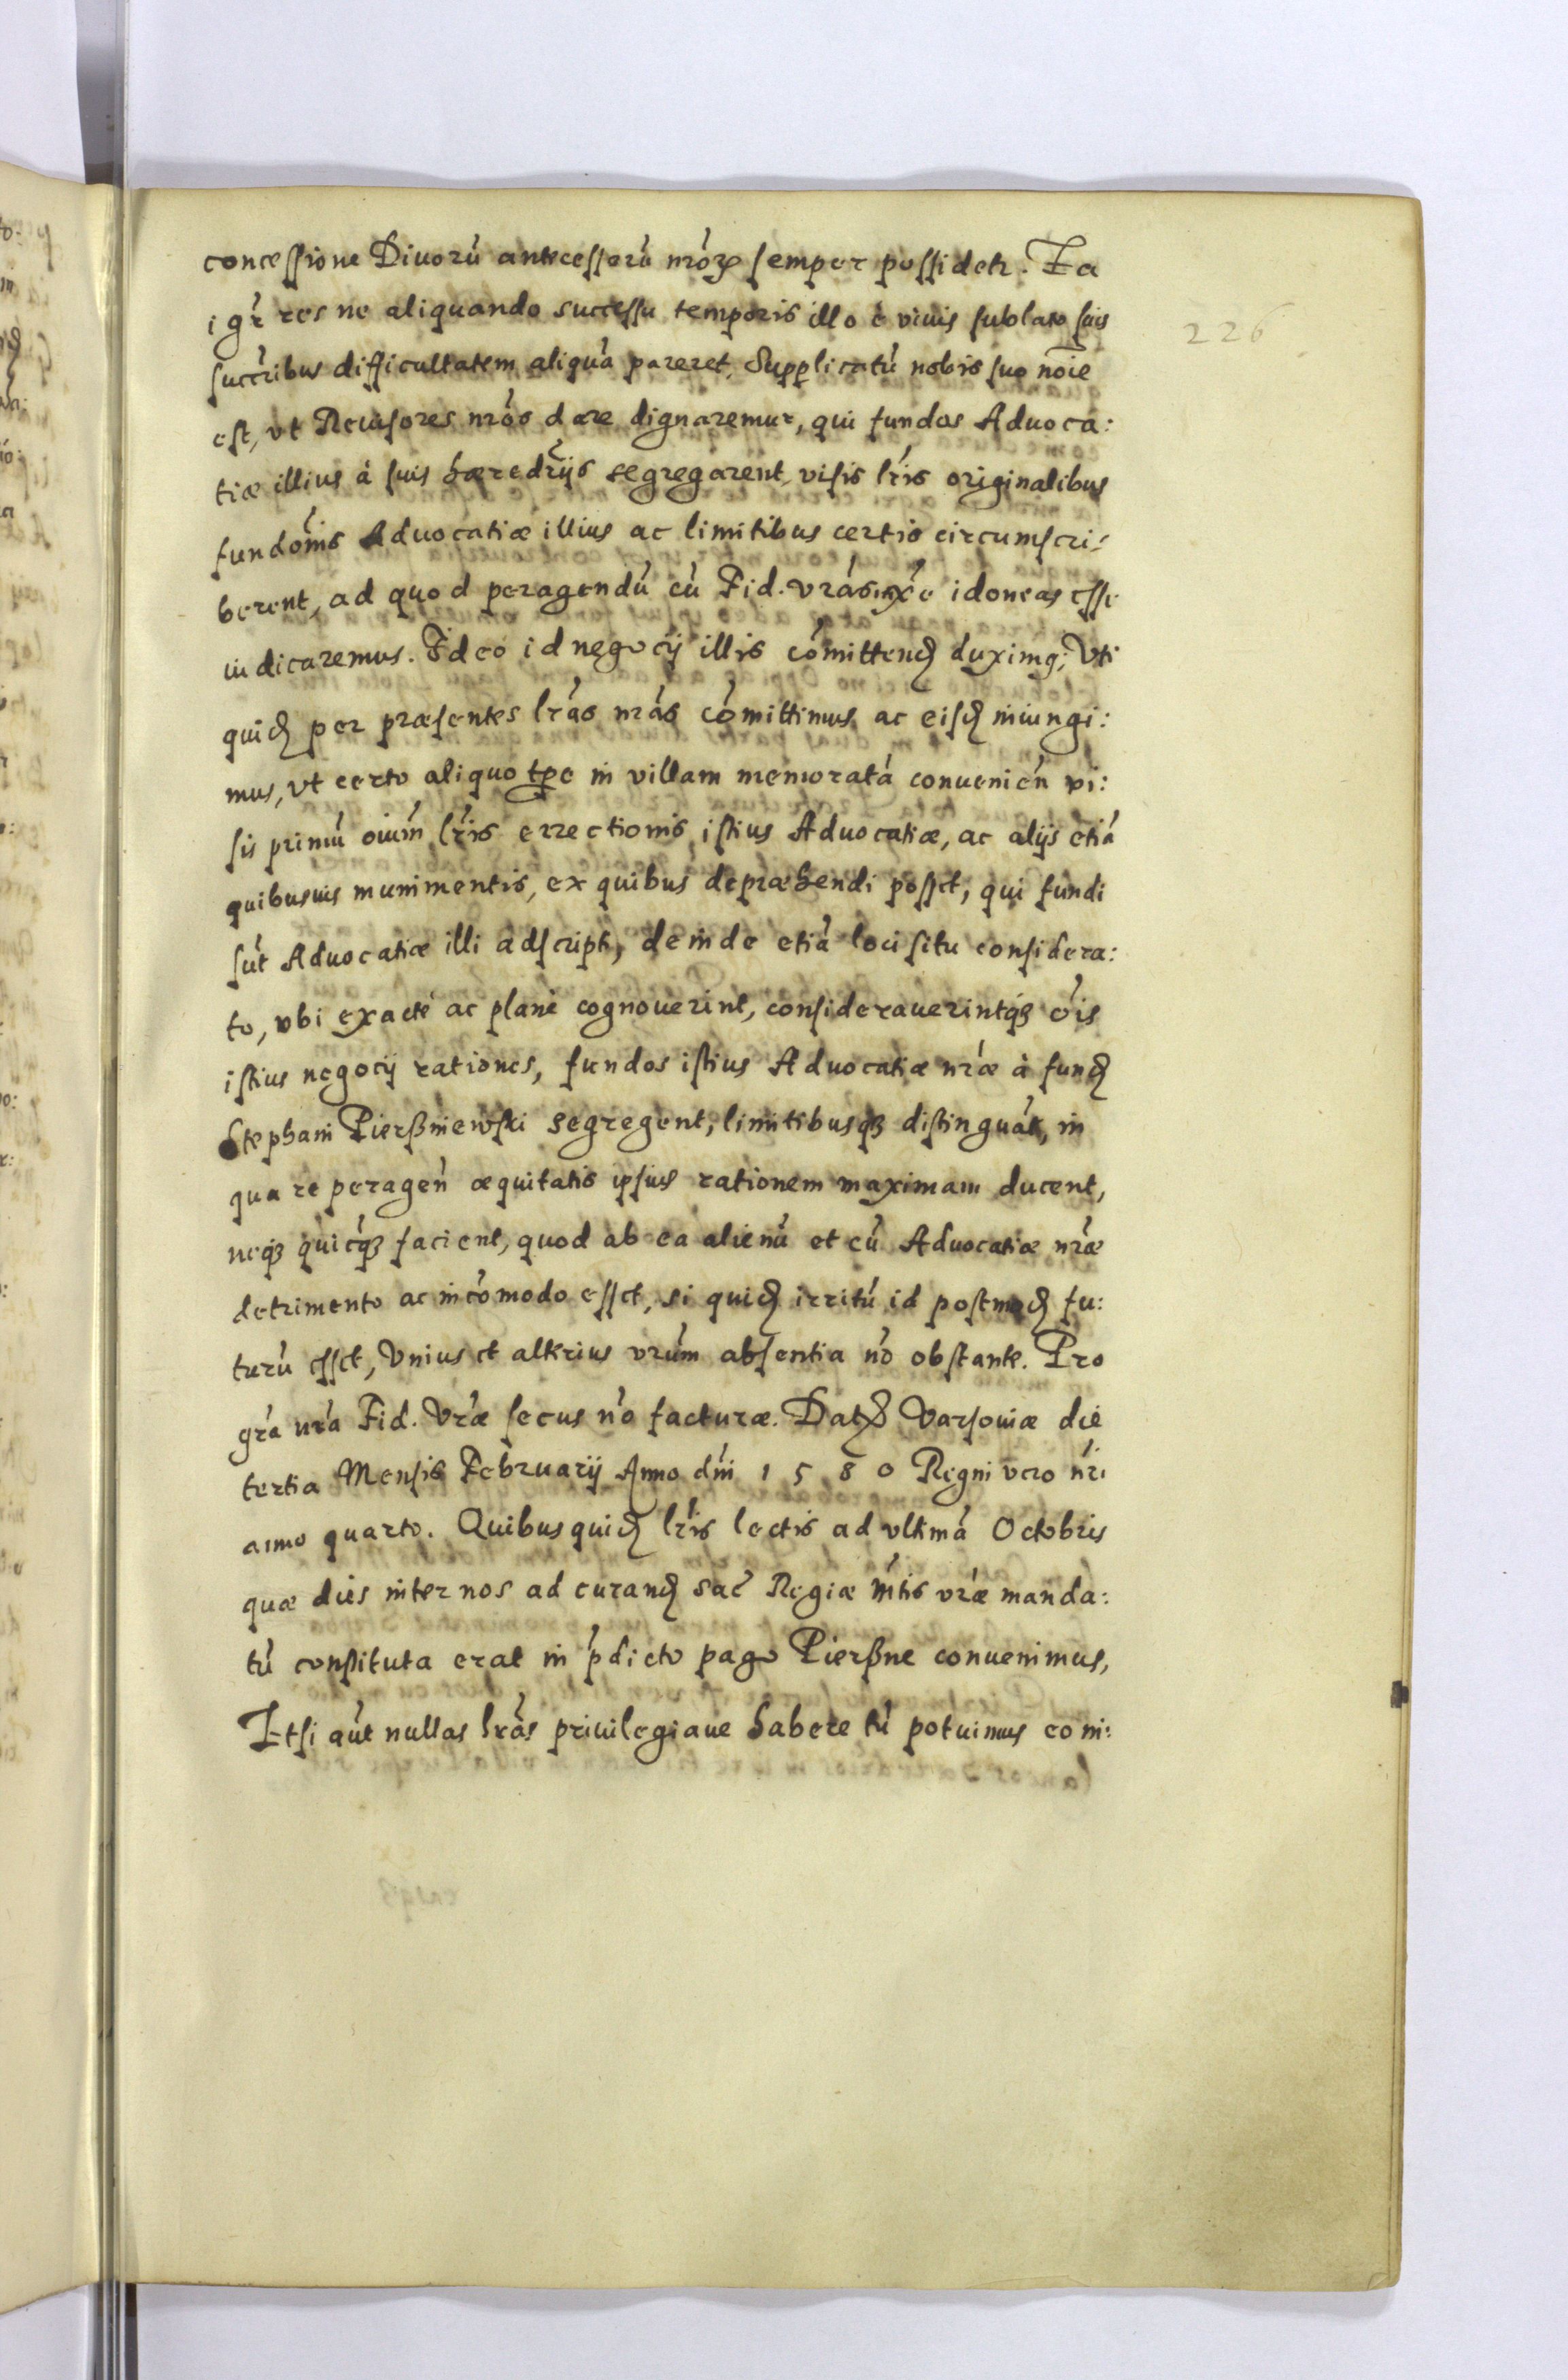 concessione Diuorú antecessorú nróꝝ semper possidetr. Ea
igr̃ res ne aliquando successu temporis illo è viuis sublato suis
succribus difficultatem aliquá pareret, Supplicatú nobis suo noíe
est, vt Reuisores nrós dare dignaremur, qui fundos Aduoca:
tiæ illius à suis hæredrijs segregarent, visis lr̃is originalibus
fundónis Aduocatiæ illius ac limitibus certis circumscri:
berent, ad quod peragendú cú Fid. vrás idoneas esse
iudicaremus. Ideo id negocij illis cómittend duximq; Vti
quid per præsentes lrás nrás cómittimus ac eisd iniungi:
mus, vt certo aliquo tpe in villam memoratá conuenién vi:
sis primú oiúm lr̃is errectionis istius Aduocatiæ, ac alijs etiá
quibusuis munimentis, ex quibus depræhendi posset, qui fundi
sút Aduocatiæ illi adscripti, deinde etiá loci situ considera:
to, vbi exactè ac planè cognouerint, considerauerintqꝫ oís
istius negocij rationes, fundos istius Aduocatiæ nræ à fund
Stephani Pierßniewski segregent, limitibusqꝫ distinguát, in
qua re peragén æquitatis ipsius rationem maximam ducent,
neqꝫ quicqꝫ facient, quod ab ea alienú et cú Aduocatiæ nræ
detrimento ac incómodo esset, si quid irritú id postmod fu:
turú esset, Vnius et alterius vrúm absentia nó obstante. Pro
grá nrá Fid. Vræ secus nó facturæ. Dat Varsouiæ die
tertia Mensis Februarij Anno dńi 1580 Regni vero nri
anno quarto. Quibusquid lr̃is lectis ad vltimá Octobris
quæ dies inter nos ad curand Sac Regiæ Mtis vræ manda:
tú constituta erat in pdicto pago Pierßne conuenimus,
Etsi aút nullas lrás priuilegiaue habere tú potuimus eo ni:
226